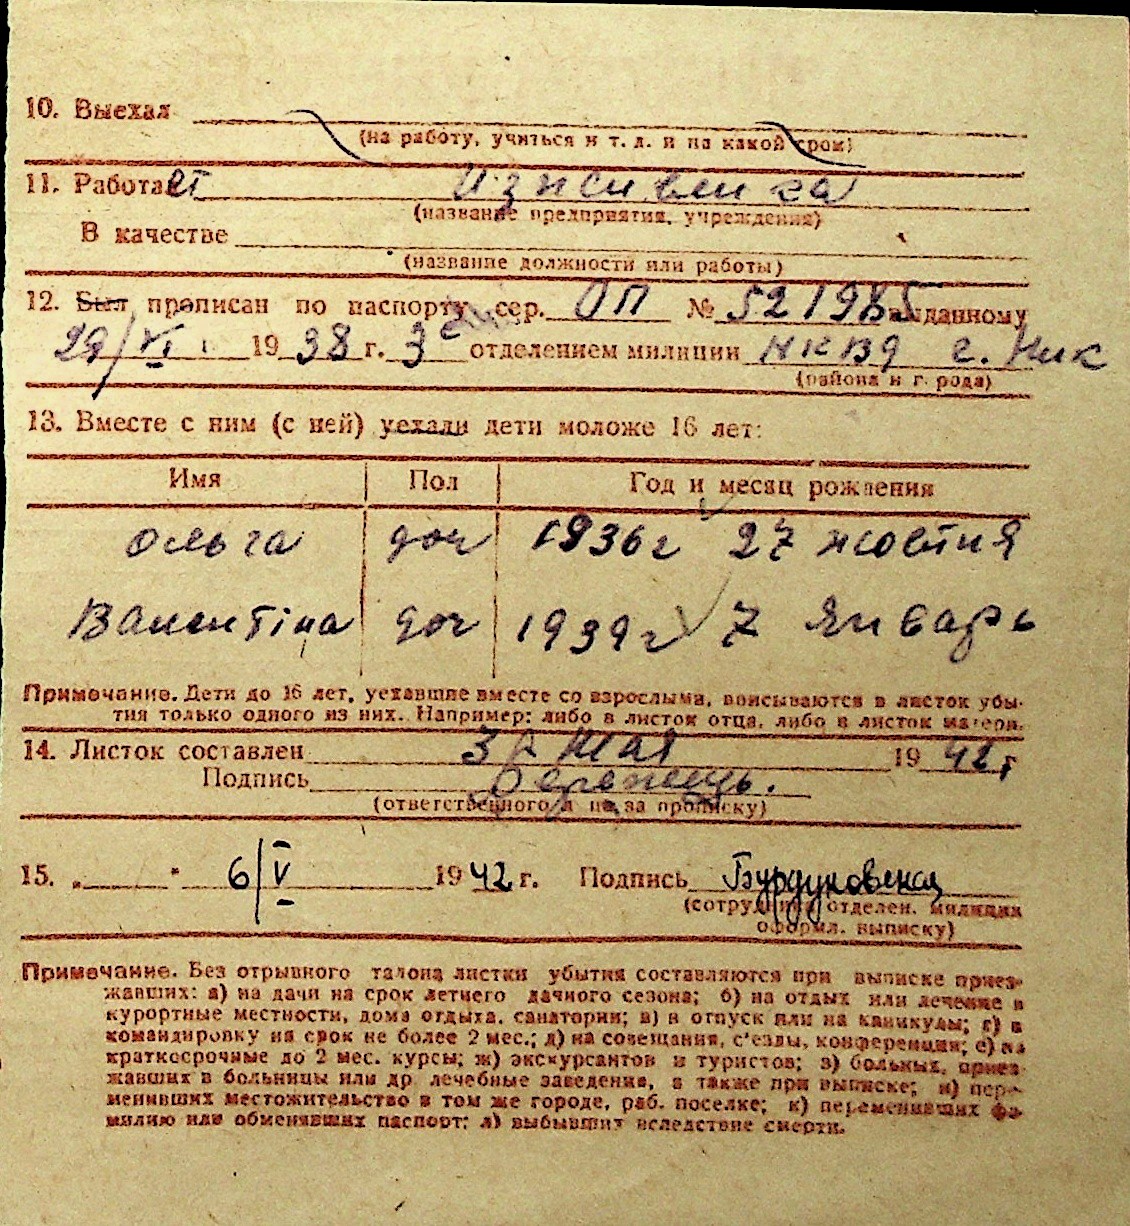 10. Выехал
(на работу, учиться и т. д. и на какой срок)
11. Работает Иждивенка
(название предприятия, учреждения)
В качестве
(название должности или работы)
12. Был прописан по паспорту сер. ОП № 521985 выданному
29/VI 1938 г. 3е отделением милиции НКВД г. Ник
(района и города)
13. Вместе с ним (с ней) уехали дети моложе 16 лет:
Имя Пол Год и месяц рождения
Ольга доч 1936 г 27 жовтня
Валентіна доч 1939 г 7 Январь
Примечание. Дети до 16 лет, уехавшие вместе со взрослыми, вписываются в листок убы-
тия только одного из них. Например: либо в листок отца, либо в листок матери.
14. Листок составлен Мая 1942 г
Подпись
(ответственного лица за прописку)
15. „ " 6/V 1942 г. Подпись Бурдуковская
(сотрудника отделен. милиции
оформл. выписку)
Примечание. Без отрывного талона листки убытия составляются при выписке приез-
жавших: а) на дачи на срок летнего дачного сезона; б) на отдых или лечение в
курортные местности, дома отдыха, санатории; в) в отпуск или на каникулы; г) в
командировку на срок не более 2 мес.; д) на совещания, с'езды, конференции; е) на
краткосрочные до 2 мес. курсы; ж) экскурсантов и туристов; з) больных, приез-
жавших в больницы или др лечебные заведения, а также при выписке; и) пере-
менивших местожительство в том же городе, раб. поселке; к) переменивших фа-
милию или обменявших паспорт; л) выбывших вследствие смерти.